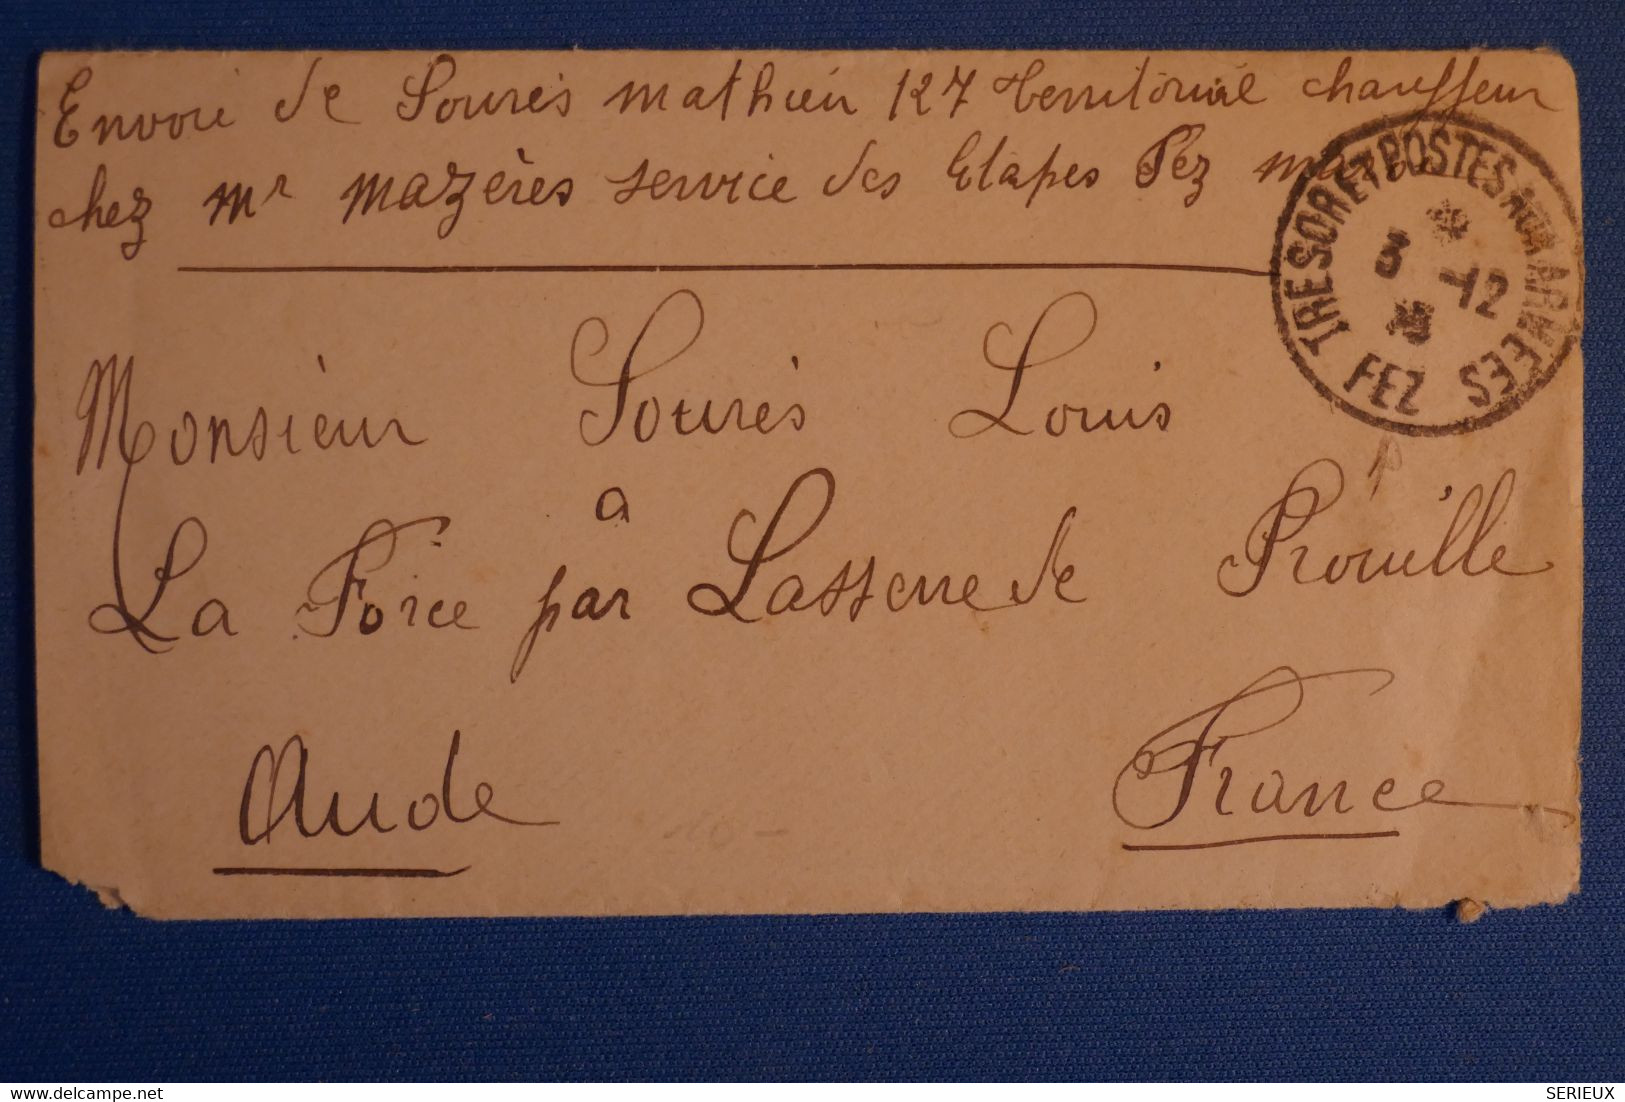 Envoie de Sourès mathieu 127 territorial chauffeur
chez Mr Mazères service des Etapes Fez
TRESOR ET POSTES AUX ARMEES
3 -12
FEZ
Monsieur Sourès Louis
a
La Force par Lasserre de Prouille
Aude France
© delcampe.net
SERIEUX